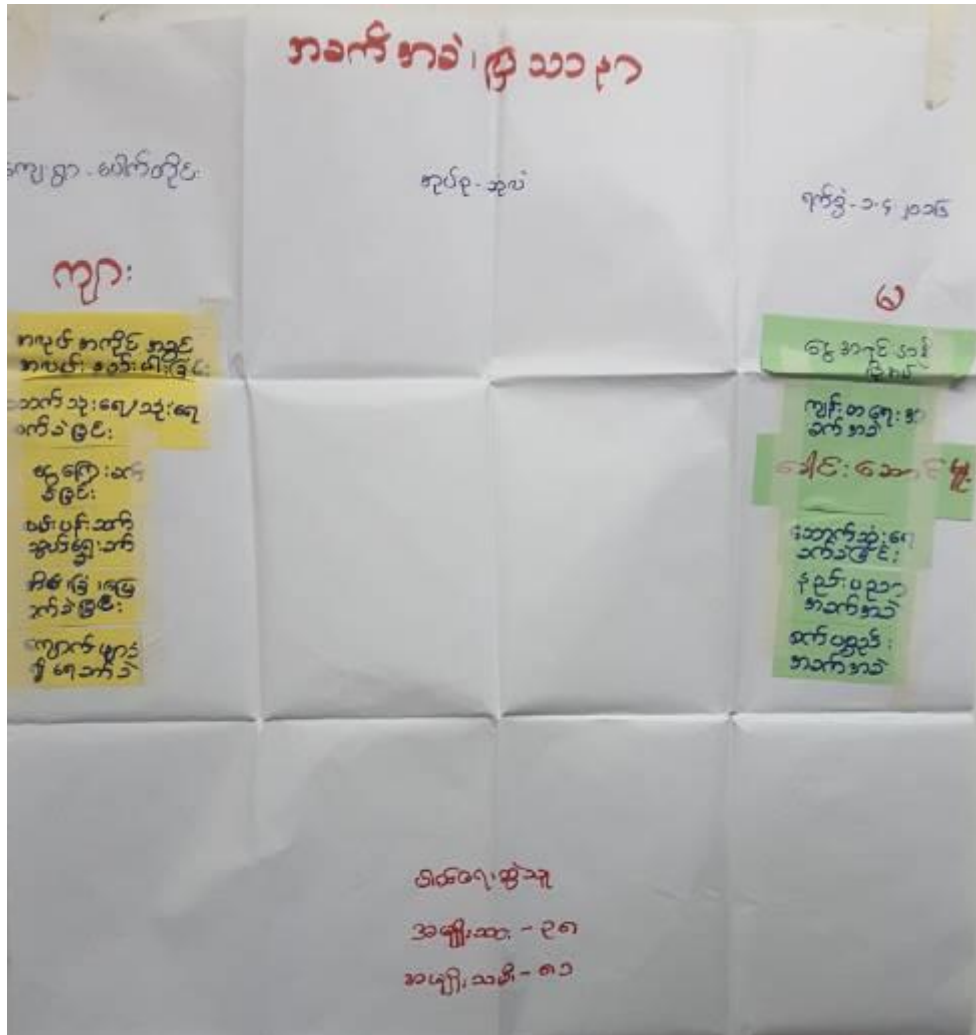 အခက်အခဲ၊ ပြဿနာ
ကျေးရွာ - ပေါက်တိုင်း
အုပ်စု - ဆူလဲ
ရက်စွဲ - ၁.၄.၂၀၁၆
ကျား
အလုပ်အကိုင် အခွင့်
အလမ်း နည်းပါးခြင်း
သောက်သုံးရေ/သုံးရေ
ခက်ခဲခြင်း
ငွေကြေးခက်
ခဲခြင်း
လမ်းပန်းဆက်
သွယ်ရေးခက်
အိမ်၊ ခြံ၊ မြေ
ခက်ခဲခြင်း
ကျောက်မျက်
ရှိရေခက်ခဲ
မ
ငွေအရင်းအနှီး
ကျန်းမာရေးအ
ခက်အခဲ
ခေါင်းဆောင်မှု
သောက်သုံးရေ
ခက်ခဲခြင်း
နည်းပညာ
အခက်အခဲ
စက်ပစ္စည်း
အခက်အခဲ
ပါဝင်ဆွေးနွေးသူ
အမျိုးသား - ၃၈
အမျိုးသမီး - ၈၁